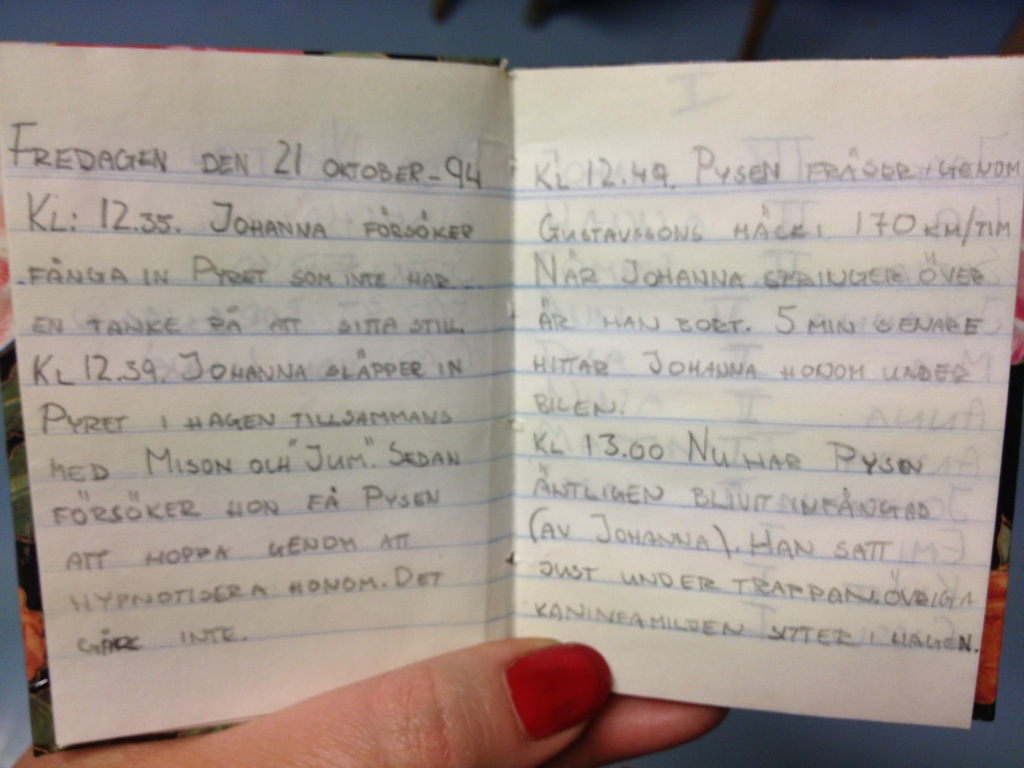 FREDAGEN DEN 21 OKTOBER-94
KL: 12.35. JOHANNA FÖRSÖKER
FÅNGA IN PYRET SOM INTE HAR
EN TANKE PÅ ATT SITTA STILL.
KL 12.39. JOHANNA SLÄPPER IN
PYRET I HAGEN TILLSAMMANS
MED MISON OCH "JUM". SEDAN
FÖRSÖKER HON FÅ PYSEN
ATT HOPPA GENOM ATT
HYPNOTISERA HONOM. DET
GÅR INTE.
KL 12.49. PYSEN FRÄSER IGENOM
GUSTAVSSONS HÄCK I 170 KM/TIM
NÄR JOHANNA SPRINGER ÖVER
ÄR HAN BORT. 5 MIN SENARE
HITTAR JOHANNA HONOM UNDER
BILEN.
KL 13.00 NU HAR PYSEN
ÄNTLIGEN BLIVIT INFÅNGAD
(AV JOHANNA). HAN SATT
JUST UNDER TRAPPAN. ÖVRIGA
KANINFAMILJEN SITTER I HAGEN.